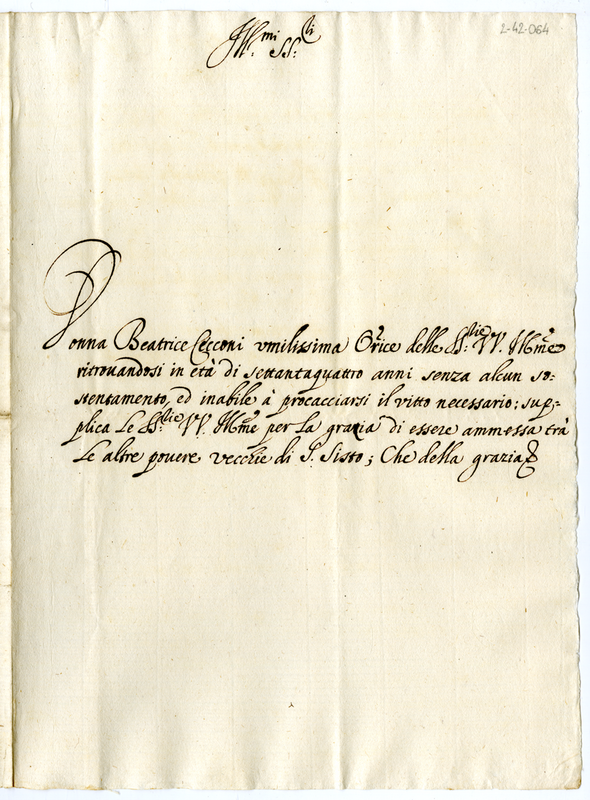 2-42-064
Ill.mi SS.ri
Donna Beatrice Cecconi vmilissima Orice delle SS.rie VV. Illme
ritrouandosi in età di settantaquattro anni senza alcun so:
stentamento, ed inabile à procacciarsi il vitto necessario; sup-
plica Le SS.rie VV. Illme per La grazia di essere ammessa trà
Le altre pouere vecchie di S. Sisto; Che della grazia &